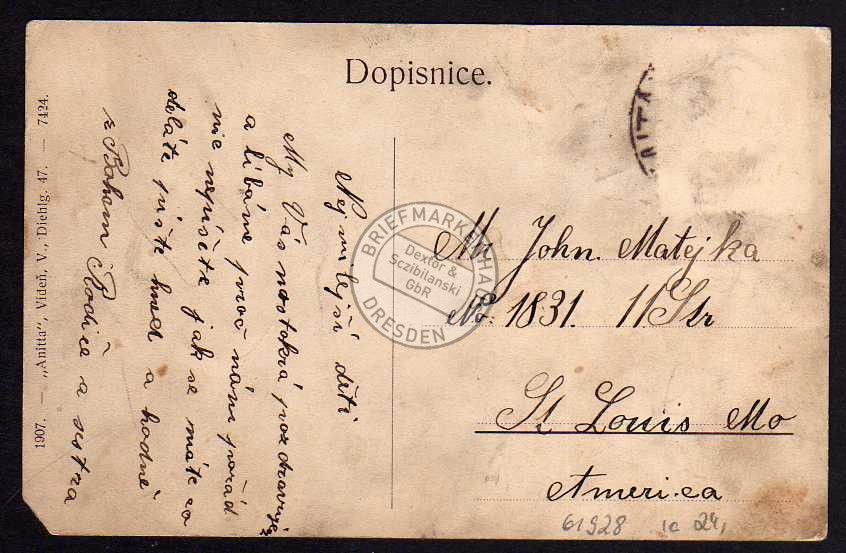 Dopisnice.
Nejmilejší děti
My Vás nastokrá pozdravuje
a líbáme proč nám pořád
nic nepíšete jak se máte co
deláte pište hned a hodně
z Bohem Rodiče a sestra
1907. — „Anitta“, Vídeň, V., Diehlg. 47. — 7424.
Mr John. Matejka
No. 1831. 11 Str
St Louis Mo
America
61928 1c 24,
BRIEFMARKENHAUS
Dextor &
Sczibilanski
GbR
DRESDEN